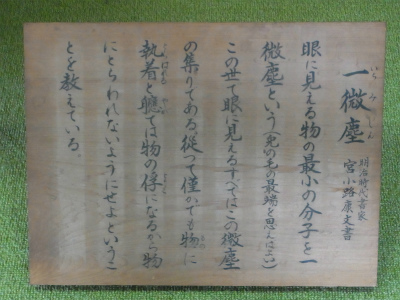 一微塵
いちみじん
明治時代書家
宮小路康文書
眼に見える物の最小の分子を一
微塵という(兎の毛の最端を思えばよい)
この世で眼に見えるすべてはこの微塵
の集りである従って僅かでも物に
執着と軈ては物の俘になるから物
にとらわれないようにせよというこ
とを教えている。